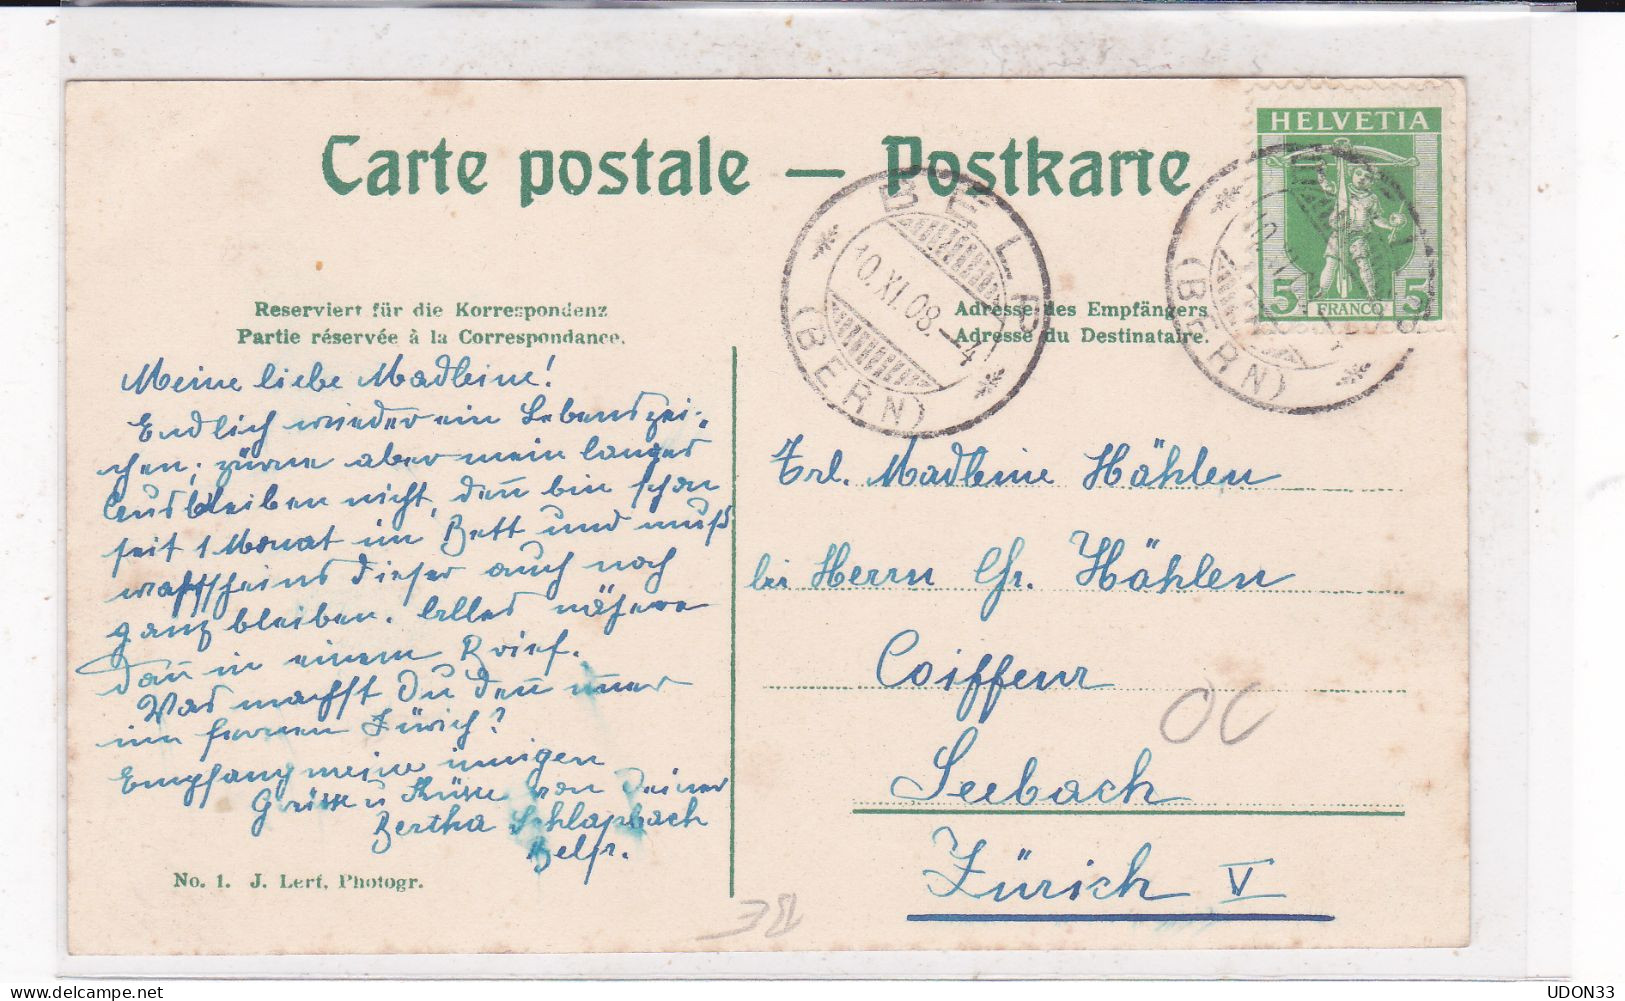 Carte postale — Postkarte
HELVETIA
5 FRANCO 5
BELP
10. XI. 08. – 4
(BERN)
(BERN)
Reserviert für die Korrespondenz
Partie réservée à la Correspondance.
Adresse des Empfängers
Adresse du Destinataire.
Meine liebe Madleine!
Endlich wieder ein Lebenszei-
chen; zürne aber mein langes
Ausbleiben nicht, den̄ bin schon
seit 1 Monat im Bett und muß
dieser auch noch
ganz bleiben. Alles nähere
dan̄ in einem Brief.
Was machst Du den̄ im̄er
im fernen Zürich?
Empfang meine innigen
Grüsse u Küsse von Deiner
Bertha Schlapbach
Belp.
Frl. Madleine Hählen
bei Herrn Chr. Hählen
Coiffeur
Seebach
Zürich V
No. 1. J. Lerf, Photogr.
UDON33